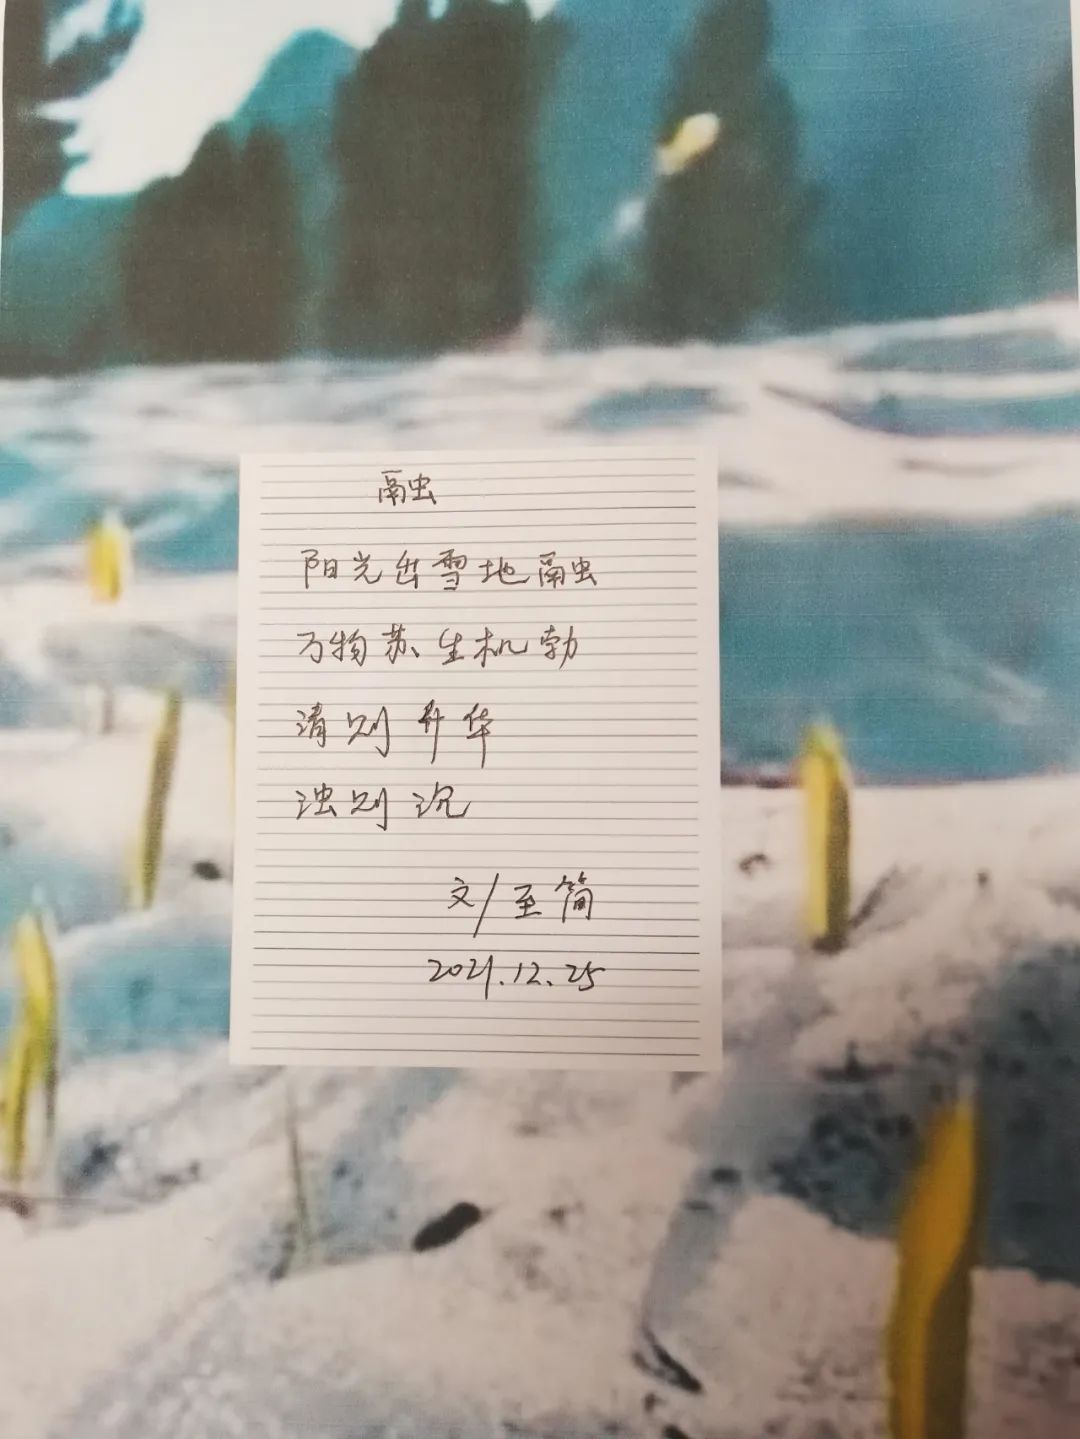 融
阳光出雪地融
万物苏生机勃
清则升华
浊则沉
文/至简
2021.12.25